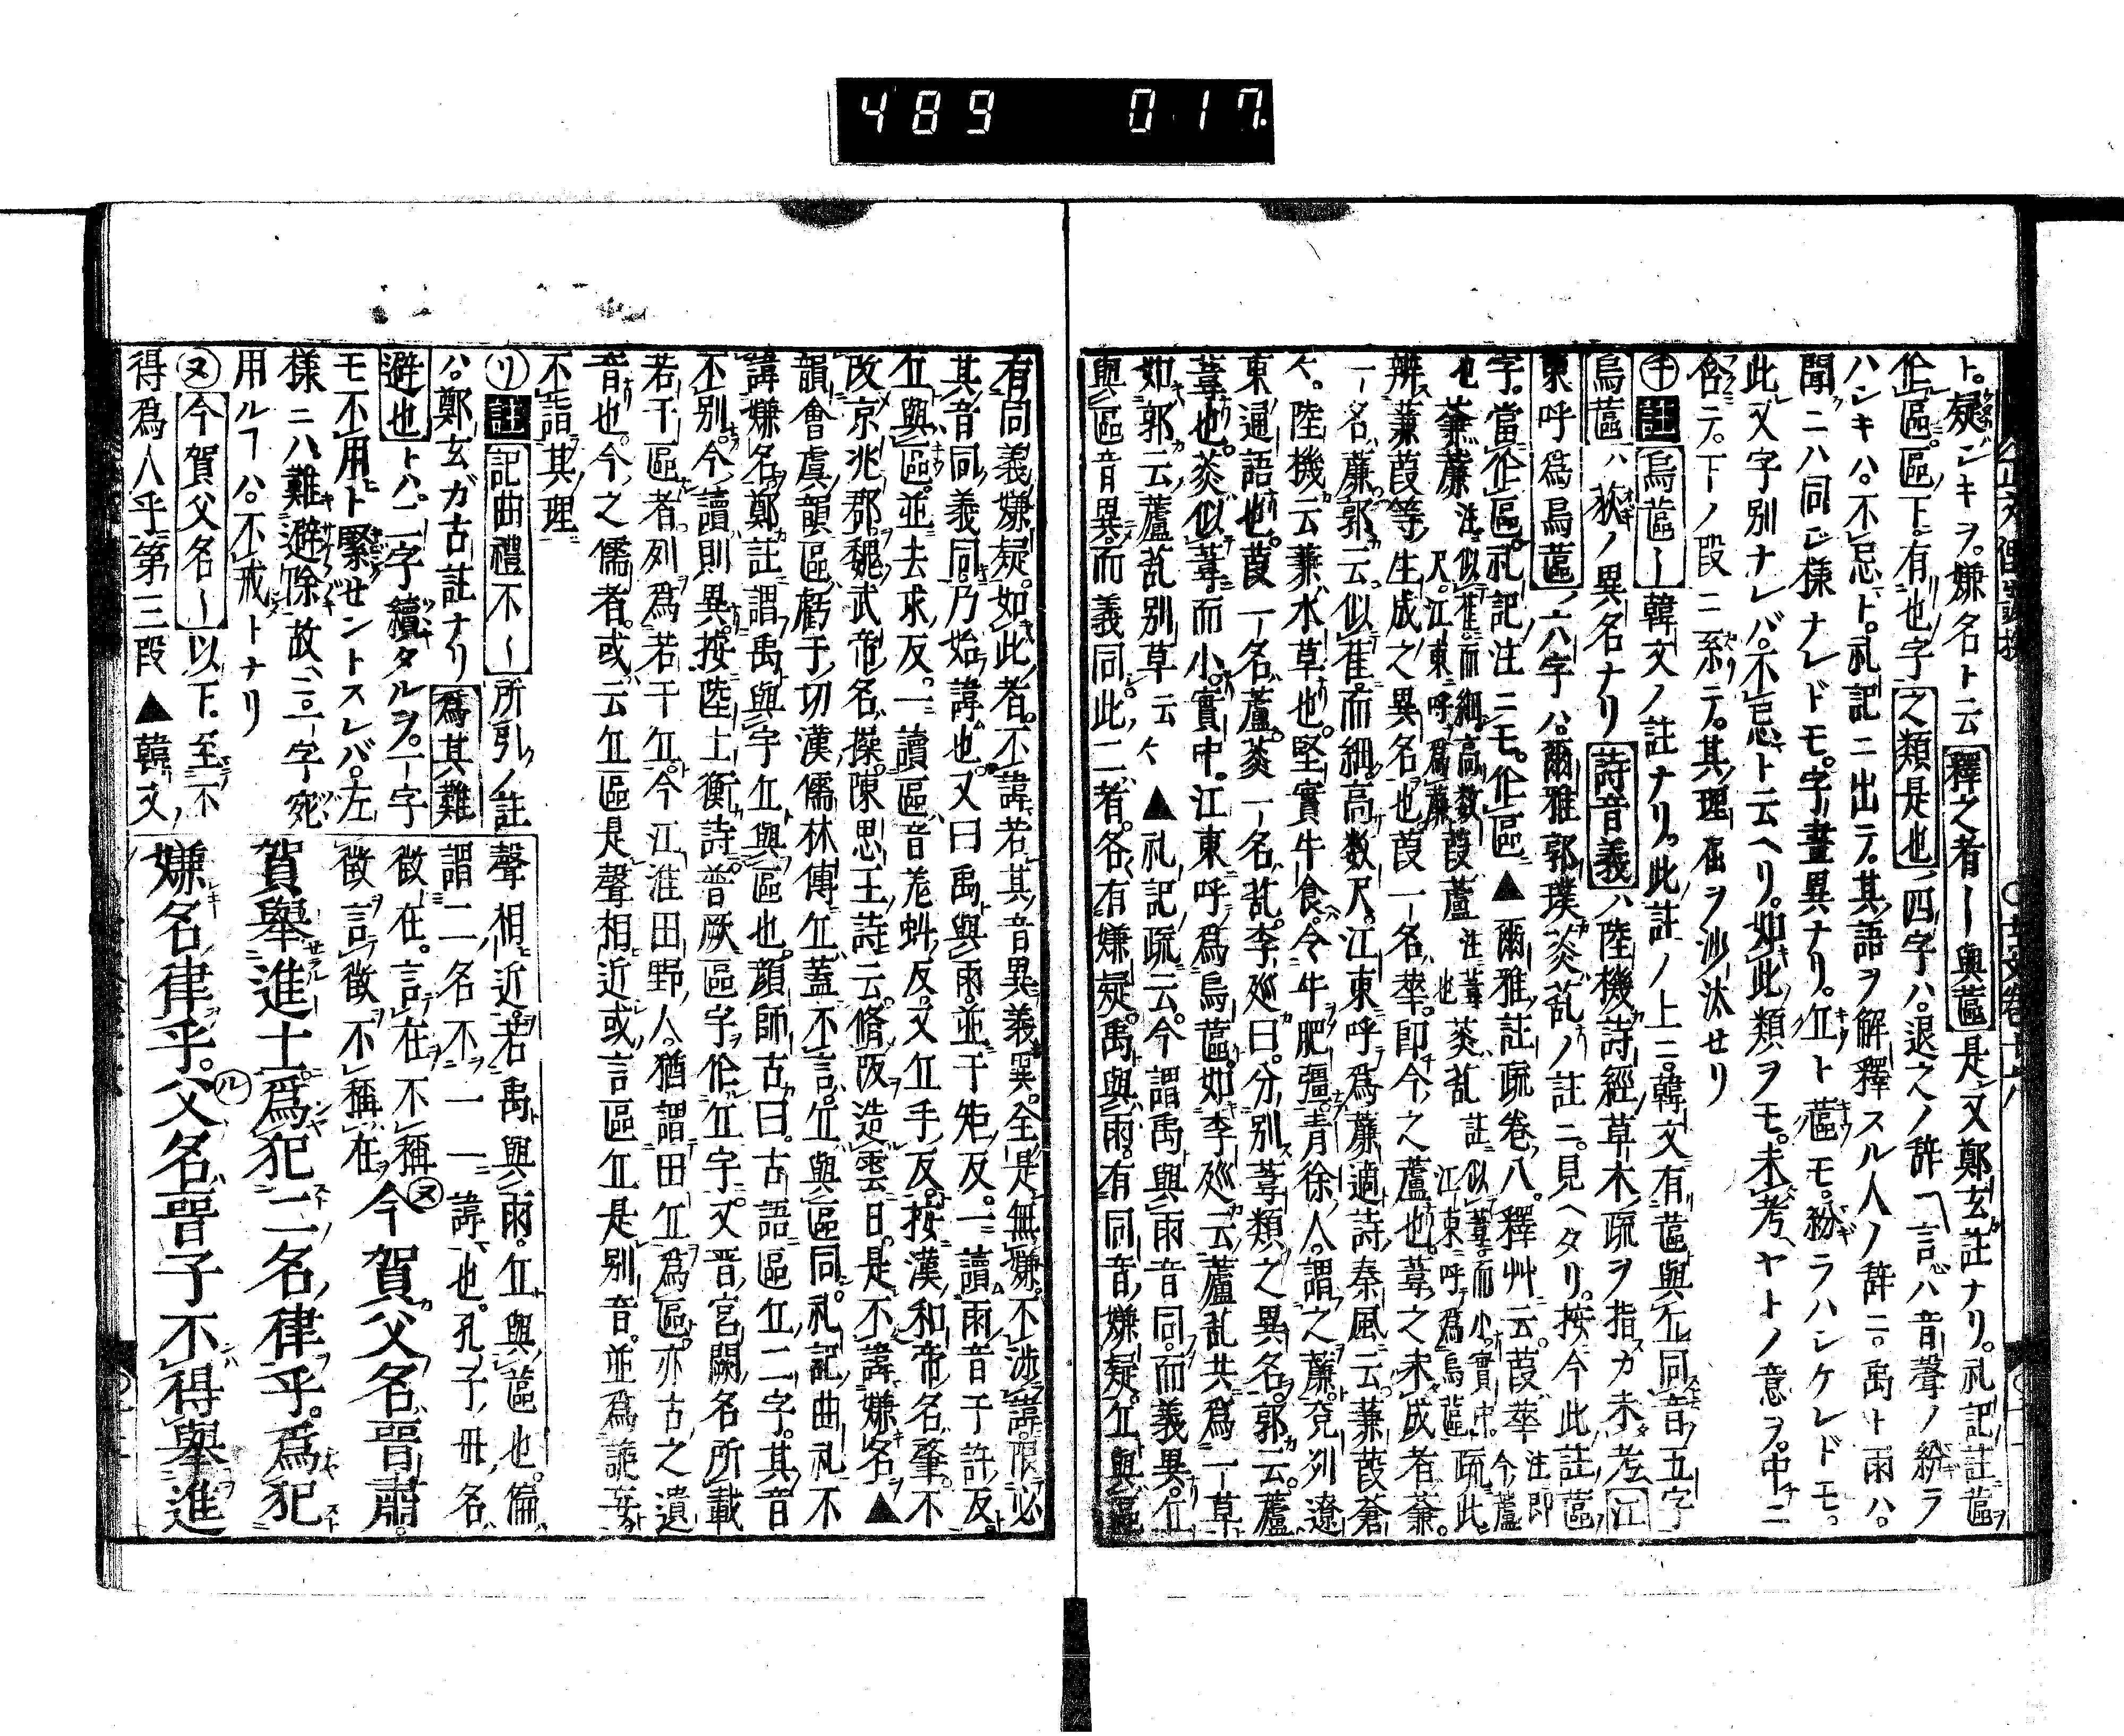 489 017
ト。疑シキヲ。嫌名ト云釋之者ー與蓲是又鄭玄註ナリ。礼記註蓲
丘區。區下。有也字之類是也四字ハ。退之ノ辞言ハ音聲ノ紛ラ
ハシキハ。不忌ト。礼記ニ出テ。其語ヲ解釋スル人ノ辞ニ。禹ト雨ハ。
聞ニハ同シ様ナレドモ。字畫異ナリ。丘ト蓲モ。紛ラハシケレドモ。
此又字別ナレバ。不忌ト云ヘリ。如此類ヲモ。未考ヤトノ意ヲ。中ニ
含テ。下ノ段ニ系テ。其理在ヲ沙汰セリ
チ註烏蓲ー韓文ノ註ナリ。此註ノ上ニ。韓文有蓲與丘同音五字
烏蓲ハ荻ノ異名ナリ詩音義ハ陸機詩經草木疏ヲ指カ未考江
東呼爲烏蓲六字ハ。爾雅郭璞菼薍ノ註ニ。見ヘタリ。按今此註蓲
字。當丘區。礼記注ニモ。丘區▲爾雅註疏卷八。釋艸云。葭葦注即今蘆
也蒹薕注似萑而細。高数尺。江東呼爲薕葭蘆注葦也菼薍註似葦而小。實中。江東呼爲烏蓲疏此
辨蒹葭等生成之異名也葭一名葦。即今之蘆也葦之未成者蒹。
一名薕郭云。似萑而細。高数尺。江東呼爲薕適詩秦風云蒹葭蒼
々。陸機云蒹水草也。堅實牛食。令牛肥彊。青徐人謂之薕。兗州遼
東通語也。葭一名蘆。菼一名薍。李巡曰。分別葦類之異名。郭云。蘆
葦也。菼似葦而小。實中。江東呼爲烏蓲。如李巡云蘆薍共爲一草
如郭云蘆薍別草云々▲礼記疏云。今謂禹與雨音同。而義異。丘
與區音異。而義同。此二者。各有嫌疑。禹與雨。有同音嫌疑。丘與區
有同義嫌疑。如此者。不諱。若其音異義異。全是無嫌。不渉諱限。必
其音同義同。乃始諱也。又曰禹與雨。並于矩反。一讀雨音于許反。
丘與區。並去求反。一讀區音羗虯反。又丘手反。按漢和帝名肇。不
改京兆郡。魏武帝名操。陳思王詩云。脩阪造雲日。是不諱嫌名▲
韻會虞韻區虧于切漢儒林傳丘蓋不言。丘與區同。礼記曲礼不
諱嫌名鄭註謂禹與宇丘與區也。顔師古曰。古語區丘二字。其音
不別。今讀則異。按陸士衡詩。普厥區字作丘字。又晋宮閣名所載
若干區者。列爲若干丘。今江淮田野人。猶謂田丘爲區。亦古之遺
音也。今之儒者。或云丘區是聲相近或言區丘是別音。並爲詭妄
不詣其理
リ註記曲禮不ー所引ノ註
ハ。鄭玄ガ古註ナリ爲其難
避也トハ。二字續タルヲ。一字
モ不用ト緊セントスレバ。左
様ニハ難避除故。言一字宛
用ルヿハ。不戒トナリ
ヌ今賀父名ー以下。至不
得爲人乎第三段▲韓文
聲相近。若禹與雨。丘與蓲也。徧
謂二名不一一諱也。孔子毋名
徵在。言在不稱
徵。言徵不稱在ヌ今賀父名晋肅。
賀舉進士爲犯二名律乎。爲犯
嫌名律乎。ル父名晋子不得舉進